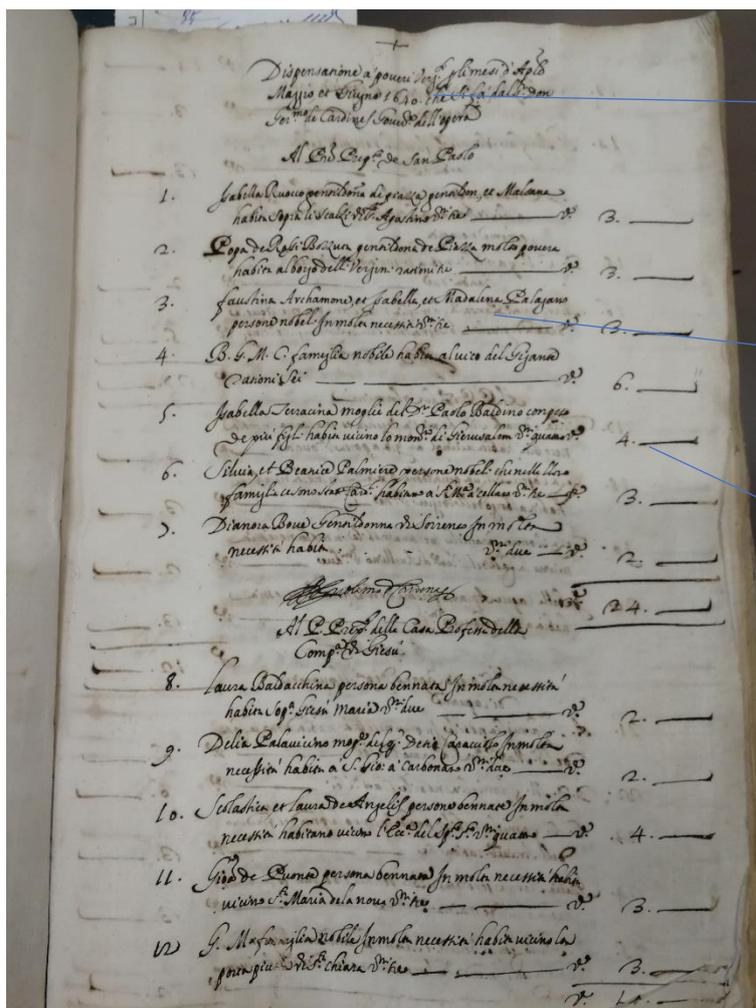 Dispensatione a' poveri Verg. p li mesi d'Aple
Maggio et Giugno 1640. che si fa dal S. don
Ger.mo de Cardines Gover.re dell'opera
Al P.re Prep.to de San Paolo
1. Isabella Ruoco gentildonna di piazza et Malsana
habita sopra li scalzi di S. Agostino tre 3.
2. Popa de Bozzuta gentildonna de Piazza molto povera
habita al borgo dell Vergini tre 3.
3. faustina Archamone, et Isabella, et Madalena Palagano
persone nobel. In molta necessità tre 3.
4. B. G. M. C. famiglia nobile habita al vico del Gigante
rationi sei 6.
5. Isabella Terracina moglie del D.r Paolo Baldino con peso
de più figli habita vicino lo mon.rio di Gierusalem quatro 4.
6. Silvia et Beatrice Palmiero persone nobel. che nelle loro
famiglie ce sono stati habitano a tre 3.
7. Dianora Bove Gentildonna di Sorrento In molta
necessità habita due 2.
24.
Al P. Prep.to della Casa Professa della
Comp.a di Giesù
8. Laura Baldacchina persona bennata In molta necessità
habita sop.a Giesù Maria due 2.
9. Delia Palavicino mog.e del q. Detio Caracciolo In molta
necessità habita a S. Gio: a Carbonara due 2.
10. Scolastica et Laura de Angelis persone bennate In molta
necessità habitano vicino quatro 4.
11. de Ponte persona bennata In molta necessità habita
vicino S.ta Maria de la nova tre 3.
12 G. M. famiglia nobile In molta necessità habita vicino la
porta di S.ta Chiara tre 3.